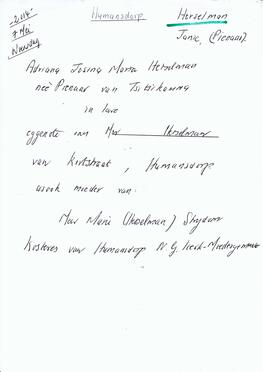 -2016-
7 Mei
Humansdorp
Herselman
Janie, (Pienaar).
Adriana Josina Maria Herselman
neë Pienaar van Tsitsikamma
in lewe
eggenote van Mnr Herselman
van Kerkstraat, Humansdorp
was ook moeder van:
Mev Marie (Herselman) Strydom
Kosteres van Humansdorp N. G. Kerk-Moedergemeente